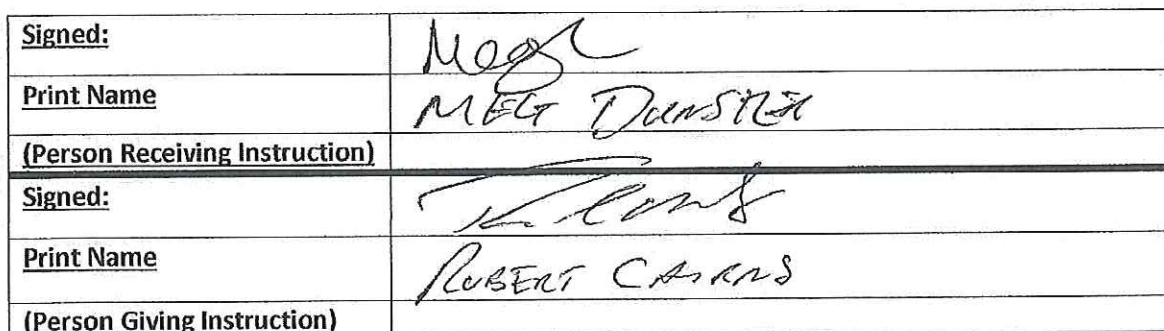 Signed:
Print Name MEG DUNSTER
(Person Receiving Instruction)
Signed:
Print Name ROBERT CAIRNS
(Person Giving Instruction)